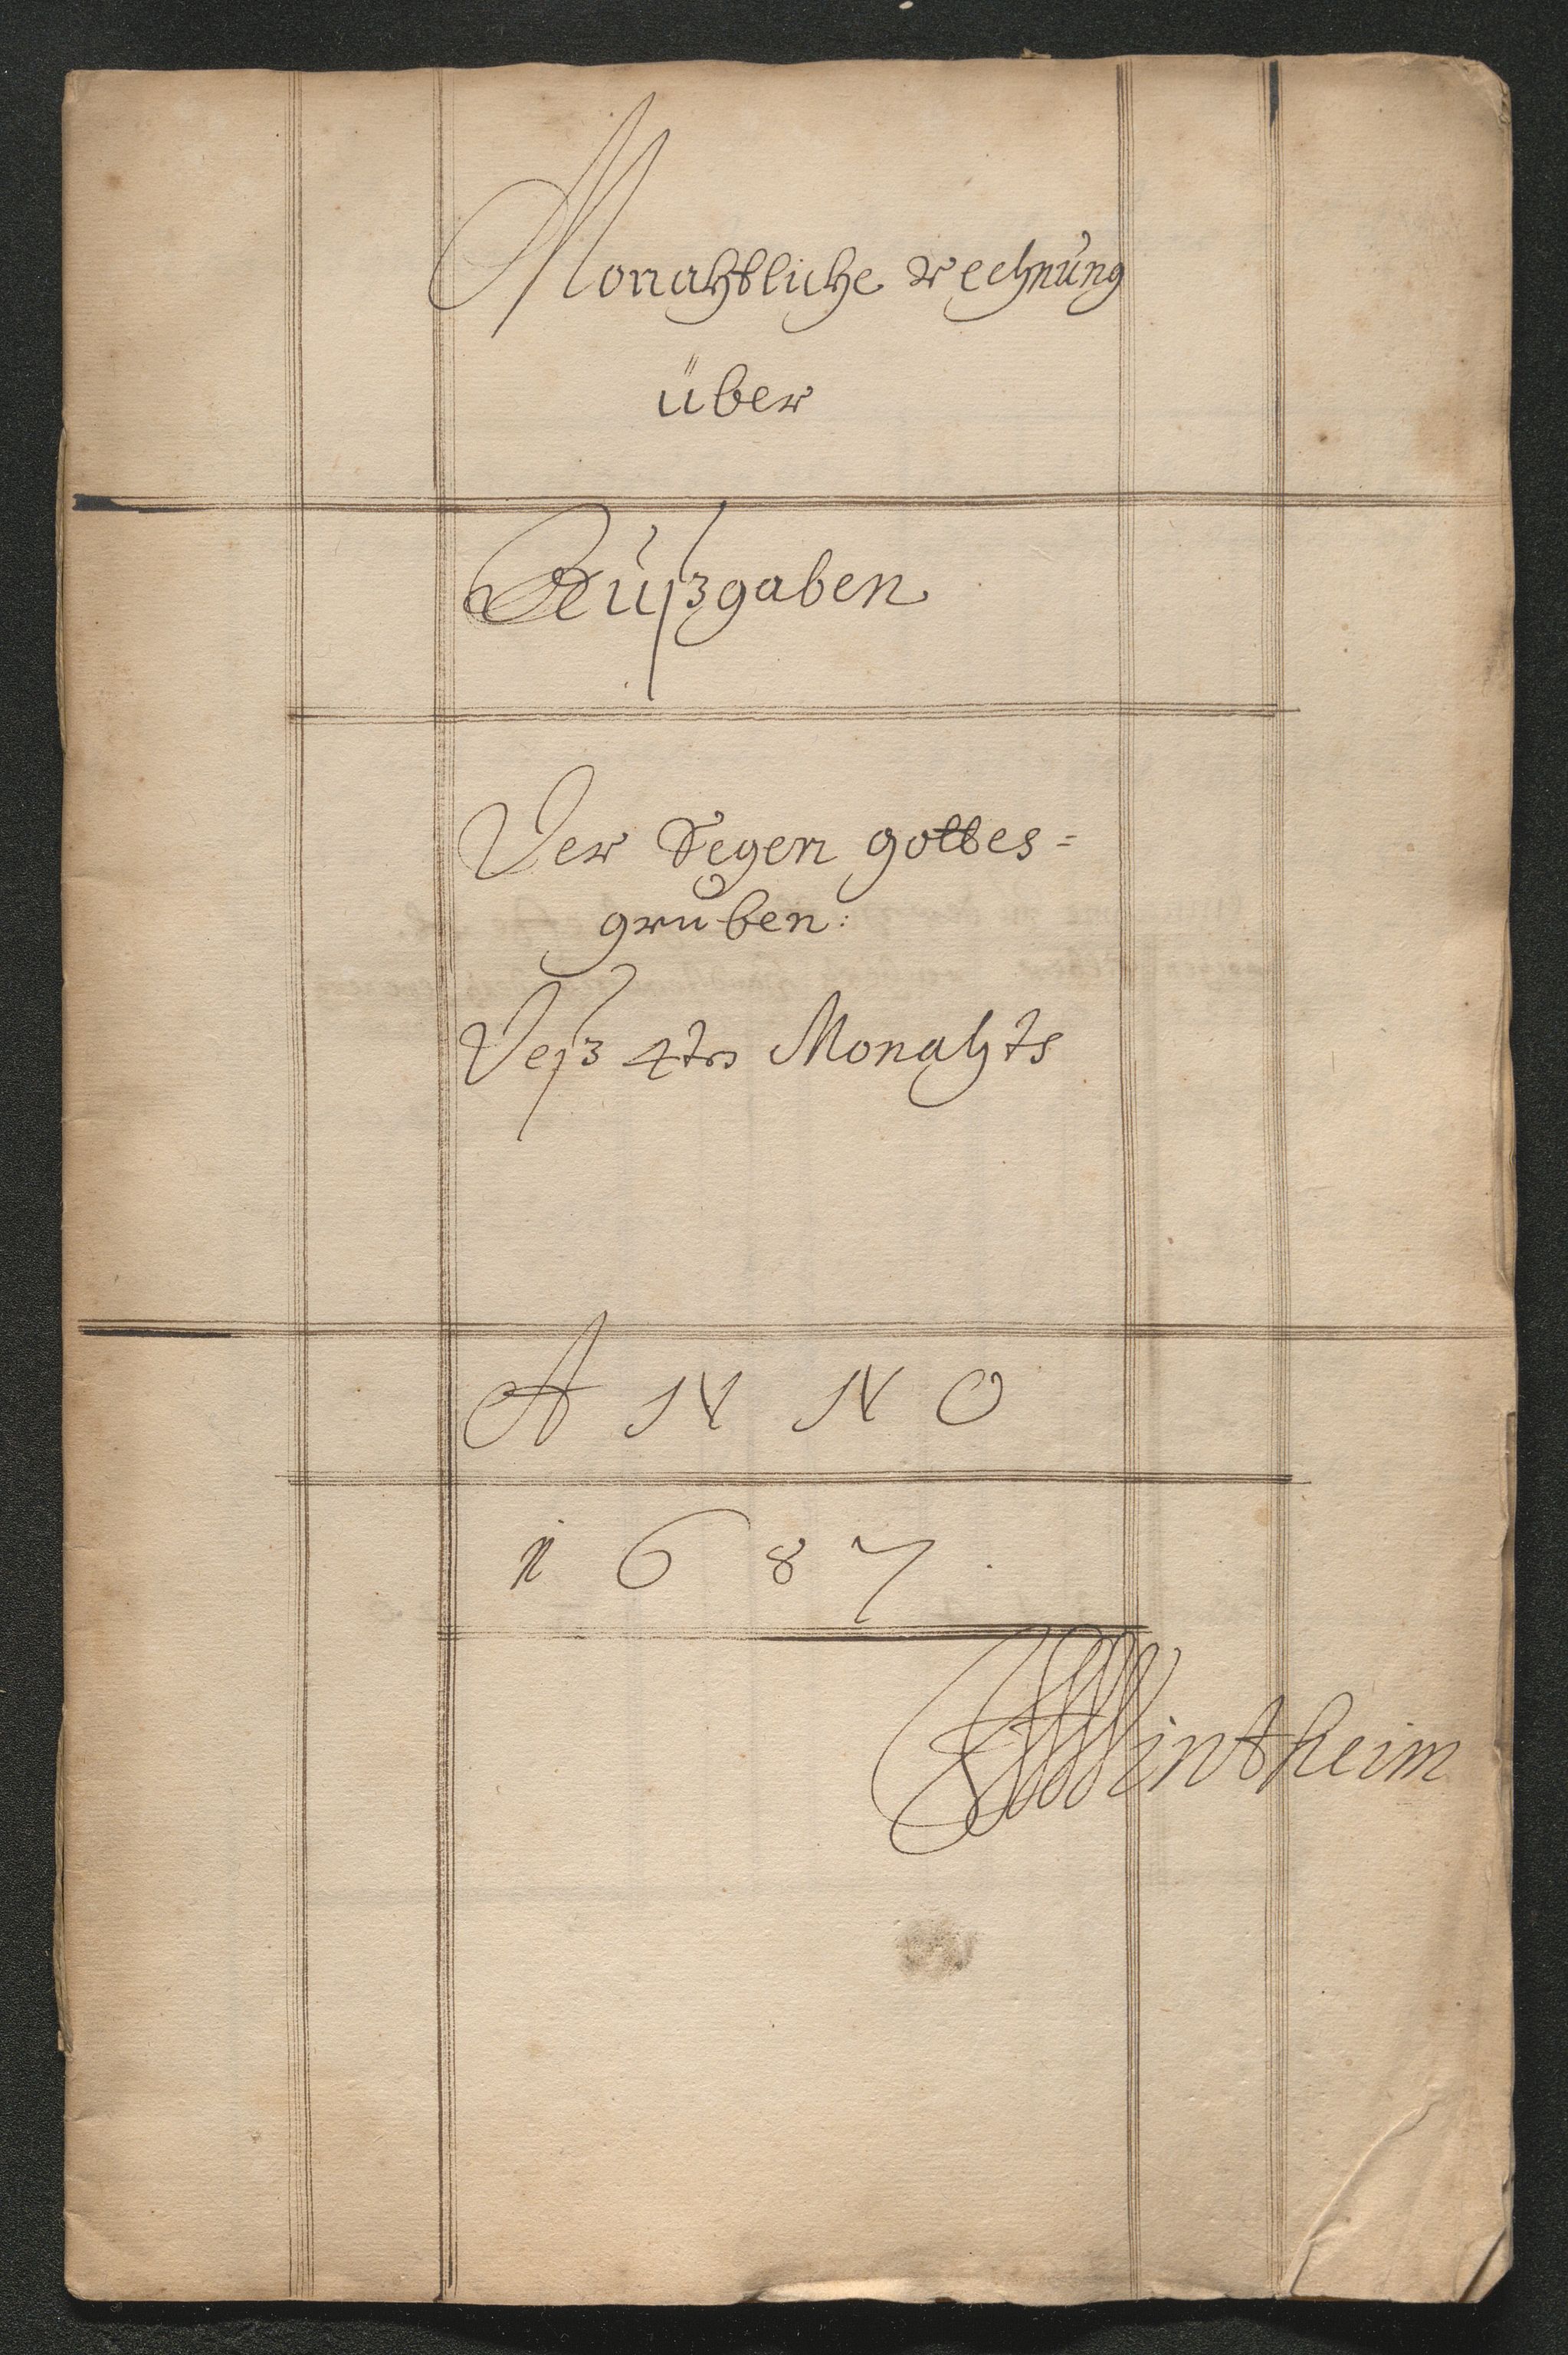 Monahtliche rechnung
über
Außgaben
Der Segen gottes=
gruben:
Deß 4ten Monahts
ANNO
1687.
Wintheim